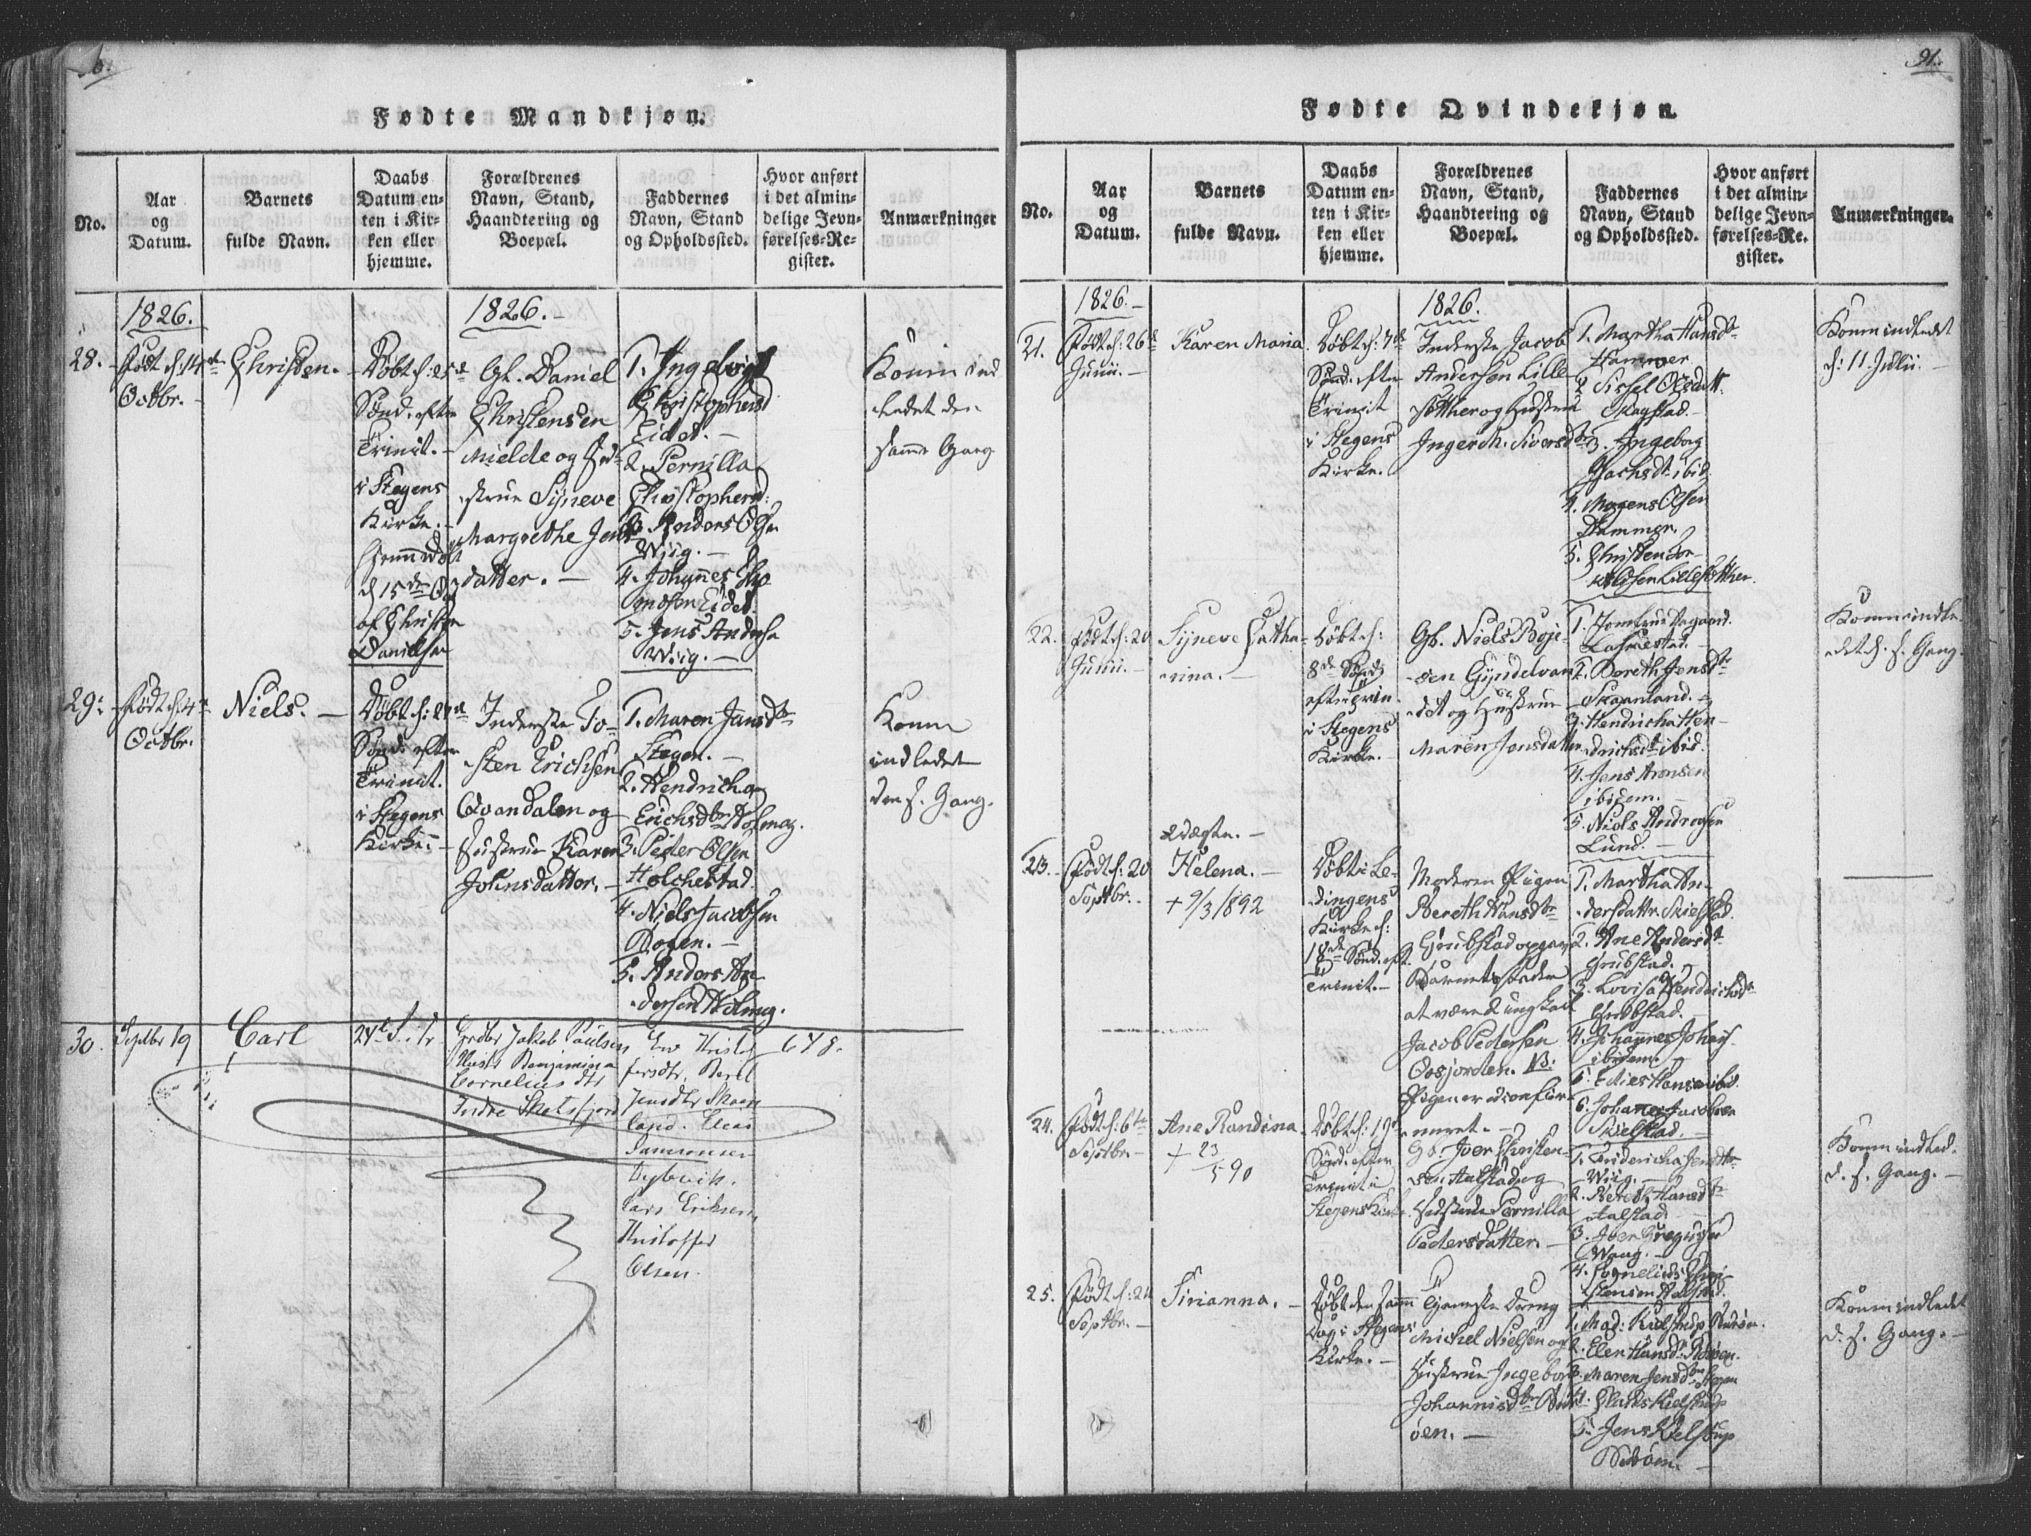 91.
Fødte Mandkjøn.
No.
Aar
og
Datum.
Barnets
fulde Navn.
Daabs
Datum en-
ten i Kir-
ken eller
hjemme.
Forældrenes
Navn, Stand,
Haandtering og
Boepæl.
Faddernes
Navn, Stand
og Opholdssted.
Hvor anført
i det almin-
delige Jevn-
førelses-Re-
gister.
Anmærkninger
1826.
1826.-
28.
Født d: 14de
Octbr.-
Christen.
Døbt d: 25de
Sønd. efter
Trinit.-
i Stegens
Kirke.-
Hjemmedøbt
d 15de Oct
af Christen
Danielsen
Gb. Daniel
Christensen
Mielde og Hu-
strue Syneve
Margrethe Jens
datter.-
1. Ingeborg
Christophersd
Eidet.-
2. Pernilla
Christophersd:
3. Reiders Olsen
Wiig.-
4. Johannes
Eidet.
5. Jens Anderse
Wiig.-
Konen ind
ledet den
samme Gang
29.
Født d: 4de
Octbr.
Niels.-
Døbt d: 27de
Sønd. efter
Trinit.
i Stegens
Kirke.-
Inderste To-
sten Erichsen
Qvandalen og
Hustrue Karen
Johnsdatter.-
1. Maren Jansdtr
Stegen.-
2. Hendricha
Erichsdtr
3. Peder Olsen
Holchestad
4. Niels Jacobsen
Bogen.-
5. Anders An-
dersen
Konen
indledet
den s. Gang.
30.
Septbr 19
Carl
24de S. Tr
Jakob Paulsen
Benjamina
Cornelius dtr
Indre Skotsfjord
Kristof
fersdtr. Beret
Jensdtr Skaan
land. Elias
Samsonsen
Dybvik.
Lars Eriksen,
Kristoffer
Olsen.
648.
91.
Fødte Qvindekjøn.
No.
Aar
og
Datum.
Barnets
fulde Navn.
Daabs
Datum en-
ten i Kir-
ken eller
hjemme.
Forældrenes
Navn, Stand,
Haandtering og
Boepæl.
Faddernes
Navn, Stand
og Opholdssted.
Hvor anført
i det almin-
delige Jevn-
førelses-Re-
gister.
Anmærkninger.
1826.-
1826.
21.
Født d: 26de
Junii.-
Karen Maria
Døbt d: 7de
Sønd. efter
Trinit
i Stegens
Kirke.
Inderste Jacob
Andersen Lille
Sløther og Hustrue
Inger M. Siversdtr
1. Martha Hansdtr
Hammer
2 Sissel Olsdattr.
Skagstad.-
3. Ingeborg
ibid.
4. Mogens Olsen
Hammer.
5. Christen
Lillesløtther.
Konen indledet
d: 11 Julii.-
22.
Født d: 20
Junii.-
Syneve Catha-
rina.-
Døbt d:
8de Sønd
efter Trin
i Stegens
Kirke.-
Gb. Niels Boje-
sen
og Hustrue
Maren Jonsdatter
1. Jomfrue Aagaard.
2. Doreth Jensdtr
Skaanland.-
3. Hendricha Hen-
drichsdtr ibid.
4. Jens Aronsen
ibidem.-
5. Niels Andreasen
Lund.-
Konen indle-
det d. s. Gang.
23.
Født d: 20
Septbr.-
Uægte.-
Helena.-
+ 9/3 1892
Døbt i Le-
dingens
Kirke d:
18de Sønd. eft.
Trinit.-
Moderen Pigen
Bereth Hansdtr
Grubstad opgav
Barnefader
at være d ungkarl
Jacob Pedersen
Oosjorden. NB.
Pigen er uconfir-
meret.-
1. Martha An-
dersdattr. Skielstad.
2. Ane Andersdtr
Grubstad.
3. Lovisa Hendrichsdtr
Grubstad.-
4. Johannes Johans
ibidem.
5. Hansen ibid.
6. Johannes Jacobsen
Skielstad.-
24.
Født d: 6te
Septbr.-
Ane Randina.
+ 23/5 90
Døbt d: 19de
Sønd. efter
Trinit i
Stegens Kirke
Gb. Iver Christen-
sen Aalstad og
Hustrue Pernilla
Pedersdatter.-
1. Fridericha Jensdtr.
Wiig.-
2. Bereth Hansdtr
Aalstad.
3. Iver
Wang.-
4. Cornelius Chri-
stensen Aalstad.
Konen indled.
d. s. Gang.-
25.
Født d: 24
Septbr.-
Sirianna.-
Døbt den samme
Dag i Stegens
Kirke.-
Gjemste Dreng
Michel Nielsen og
Hustrue Ingeborg
Johannisdtr Bur-
øen.-
1. Mad: Kielstrup Burøen.
2. Elen Hansd:
3. Maren Jensdtr Stegen
4. Claus Kielstrup
5. Jens Kielstrup
Konen indledet
d. s. Gang.-